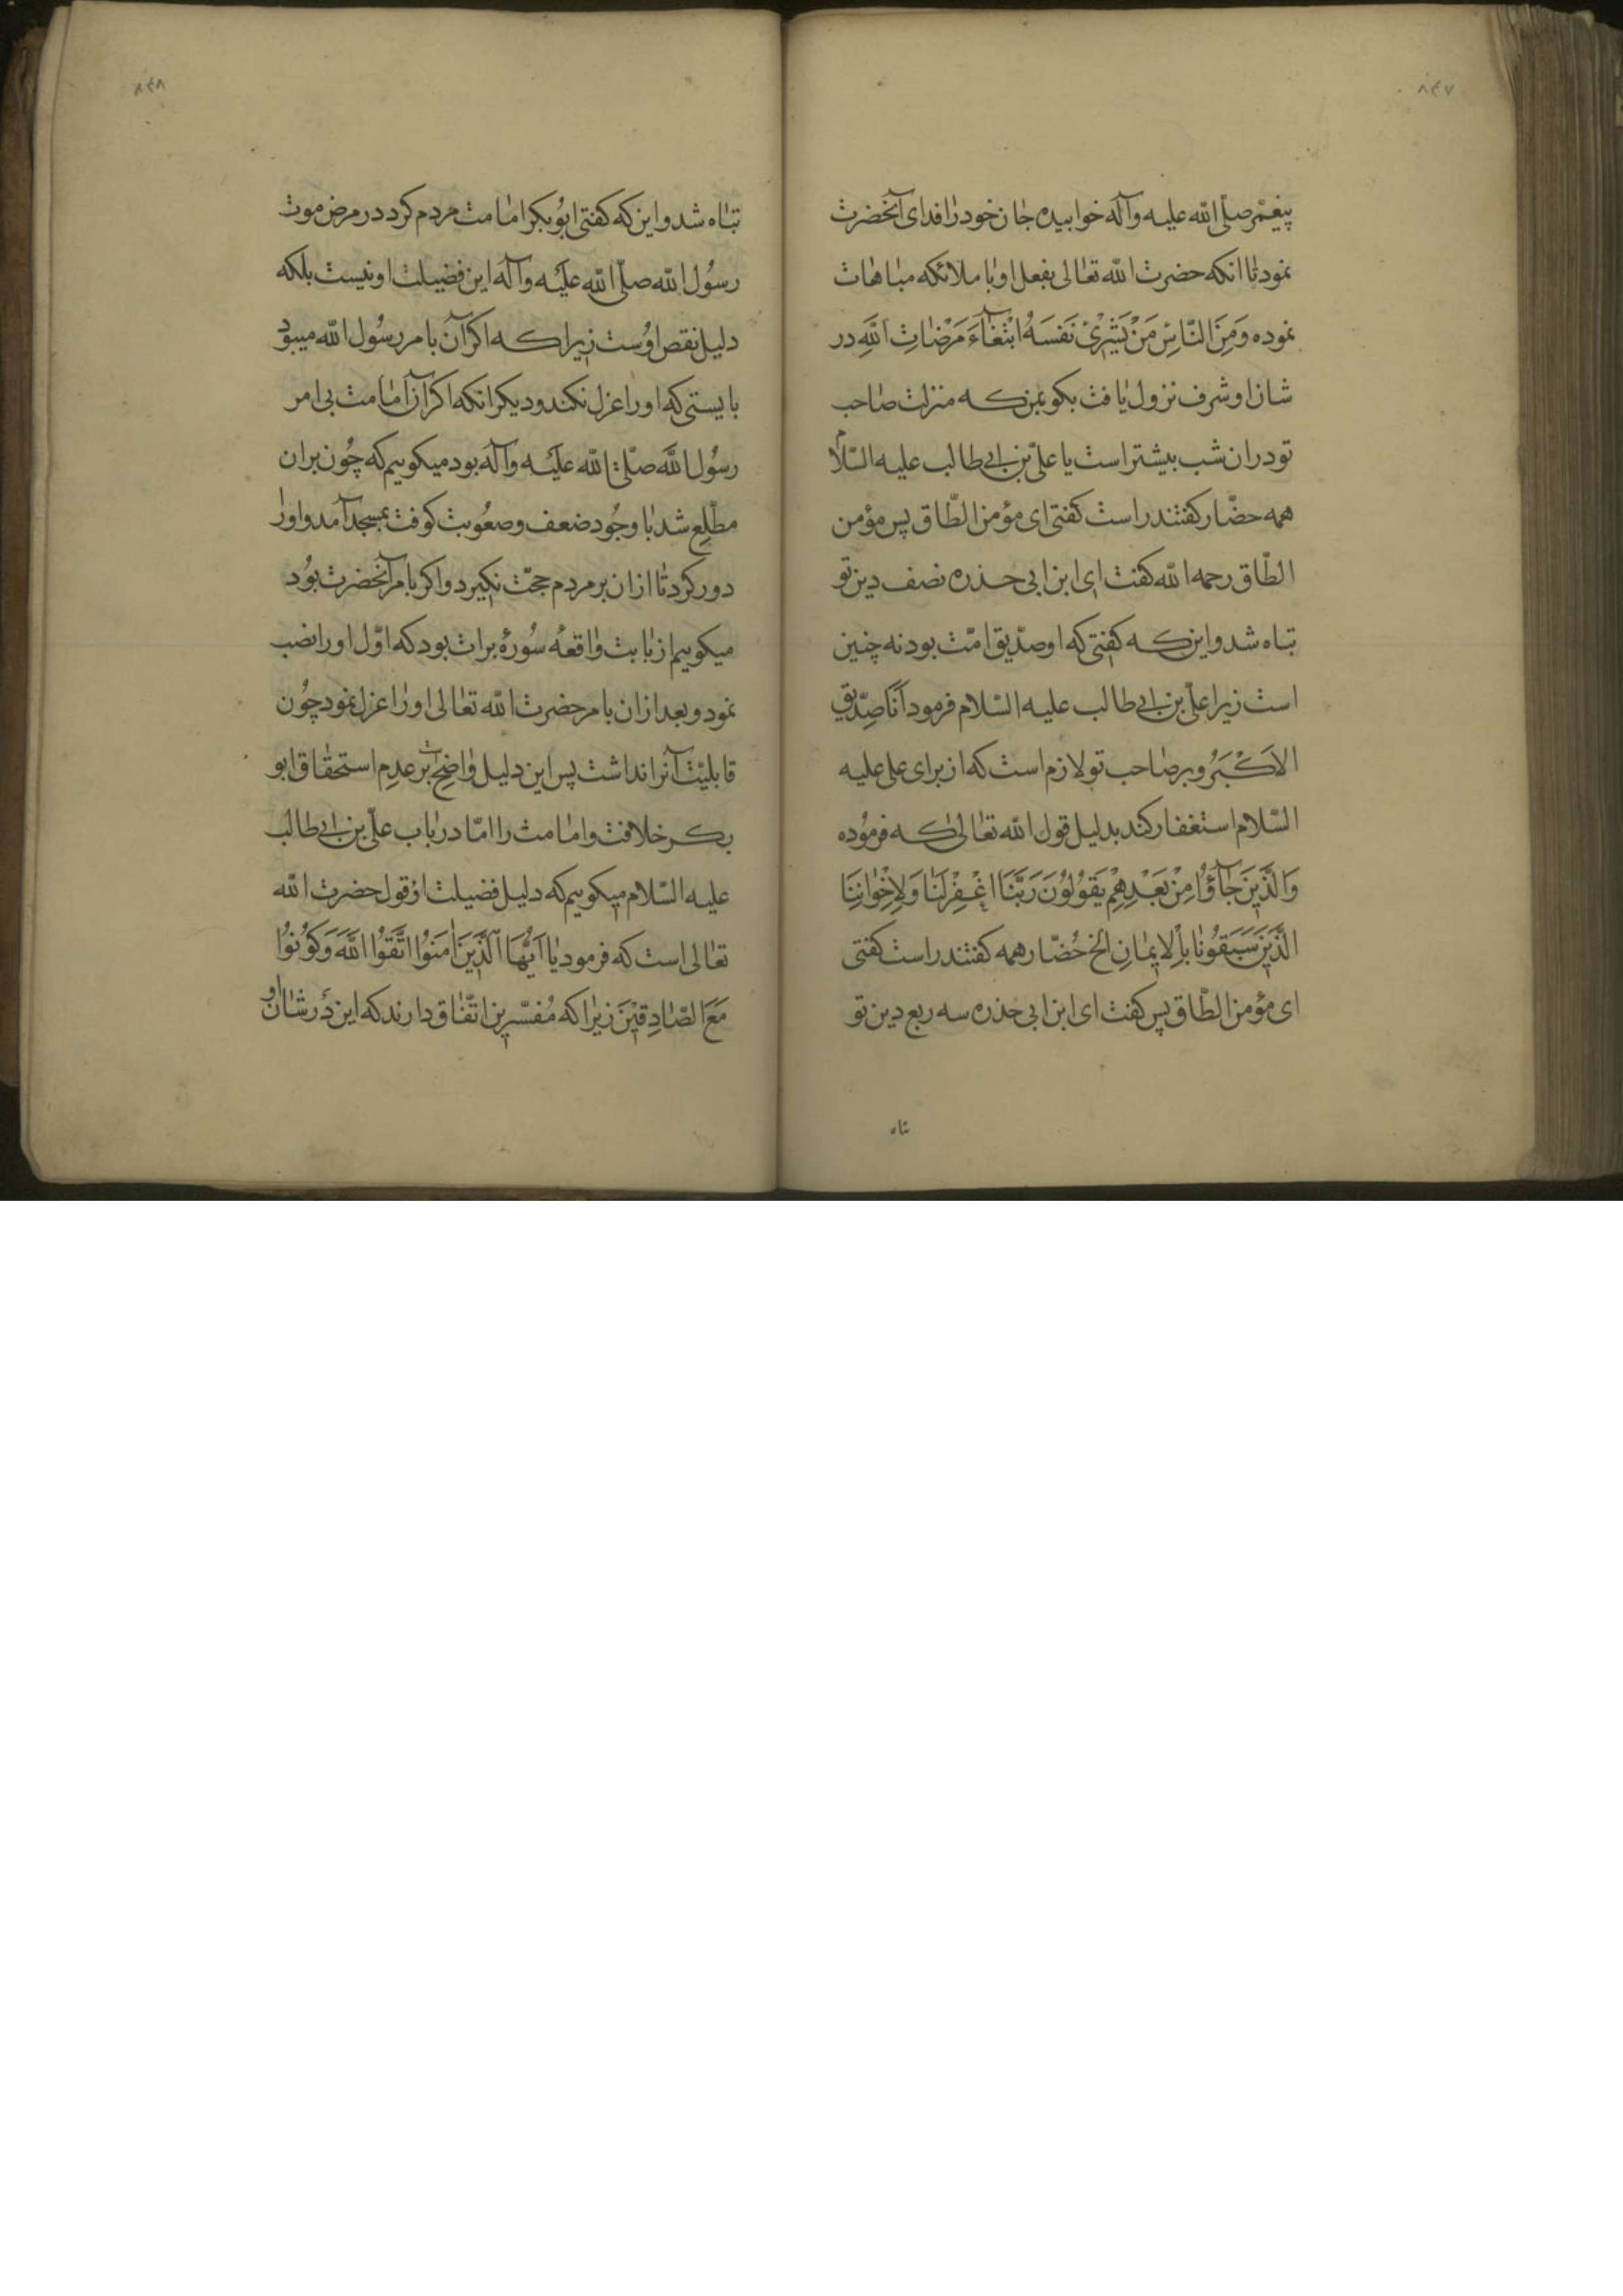 ۸۴۷
پیغمبر صلّی الله علیه وآله خوابیده جان خود را فدای آنحضرت
نمود تا انکه حضرت الله تعالی بفعل او با ملائکه مباهات
نموده وَمِنَ النّاسِ مَنْ یَشْرِیْ نَفسَهُ ابْتِغَآءَ مَرْضَاتِ اللهِ در
شان او شرف نزول یافت بکو بمن که منزلت صاحب
تو در ان شب بیشتر است یا علیّ بن ابی طالب علیه السّلام
همه حضّار کفتند راست کفتی ای مؤمن الطّاق پس مؤمن
الطّاق رحمه الله کفت ای ابن ابی حذره نصف دین تو
تباه شد و این که کفتی که او صدّیق امّت بود نه چنین
است زیرا علیّ بن ابی طالب علیه السّلام فرمود اَنَا صِدّیقِ
الاَکْبَرُ و بر صاحب تو لازم است که از برای علی علیه
السّلام استغفار کند بدلیل قول الله تعالی که فرمُوده
وَالَّذینَ جَآؤُا مِنْ بَعْدِهِمْ یَقُولُونَ رَبَّنَا اغْفِرْلَنَا وَلِاِخْوٰانِنَا
الَّذینَ سَبَقُونَا بِاْلاِیمٰانِ الخ حُضّار همه کفتند راست کفتی
ای مؤمن الطّاق پس کفت ای ابن ابی حذره سه ربع دین تو
تباه
۸۴۸
تباه شد و این که کفتی ابُو بکر امامت مردم کرد در مرض موت
رسُول الله صلّی الله علیه وآله این فضیلت او نیست بلکه
دلیل نقص اوُست زیرا که اکر آن بامر رسُول الله میبود
بایستی که او را عزل نکند و دیکر انکه اکر آن امامت بی امر
رسُول الله صلّی الله علیه وآله بود میکوییم که چُون بر ان
مطّلع شد با وجُود ضعف وصعُوبت کوفت بمسجد آمد و او را
دور کرد تا از ان بر مردم حجّت نکیرد و اکر بامر آنحضرت بوُد
میکوییم از بابت واقعهٔ سُورهٔ برات بود که اوّل او را نصب
نمود و بعد از ان بامر حضرت الله تعالی او را عزل نمود چُون
قابلیّت آنرا نداشت پس این دلیل واضح است بر عدم استحقاق ابو
بکر خلافت وامامت را امّا در باب علیّ بن ابی طالب
علیه السّلام میکوییم که دلیل فضیلت او قول حضرت الله
تعالی است که فرمود یٰا اَیُّهَا الَّذینَ اٰمَنُوا اتَّقُوا اللهَ وَکُونُوا
مَعَ الصَّادِقیْنَ زیرا که مُفسّرین اتّفاق دارند که این در شان او